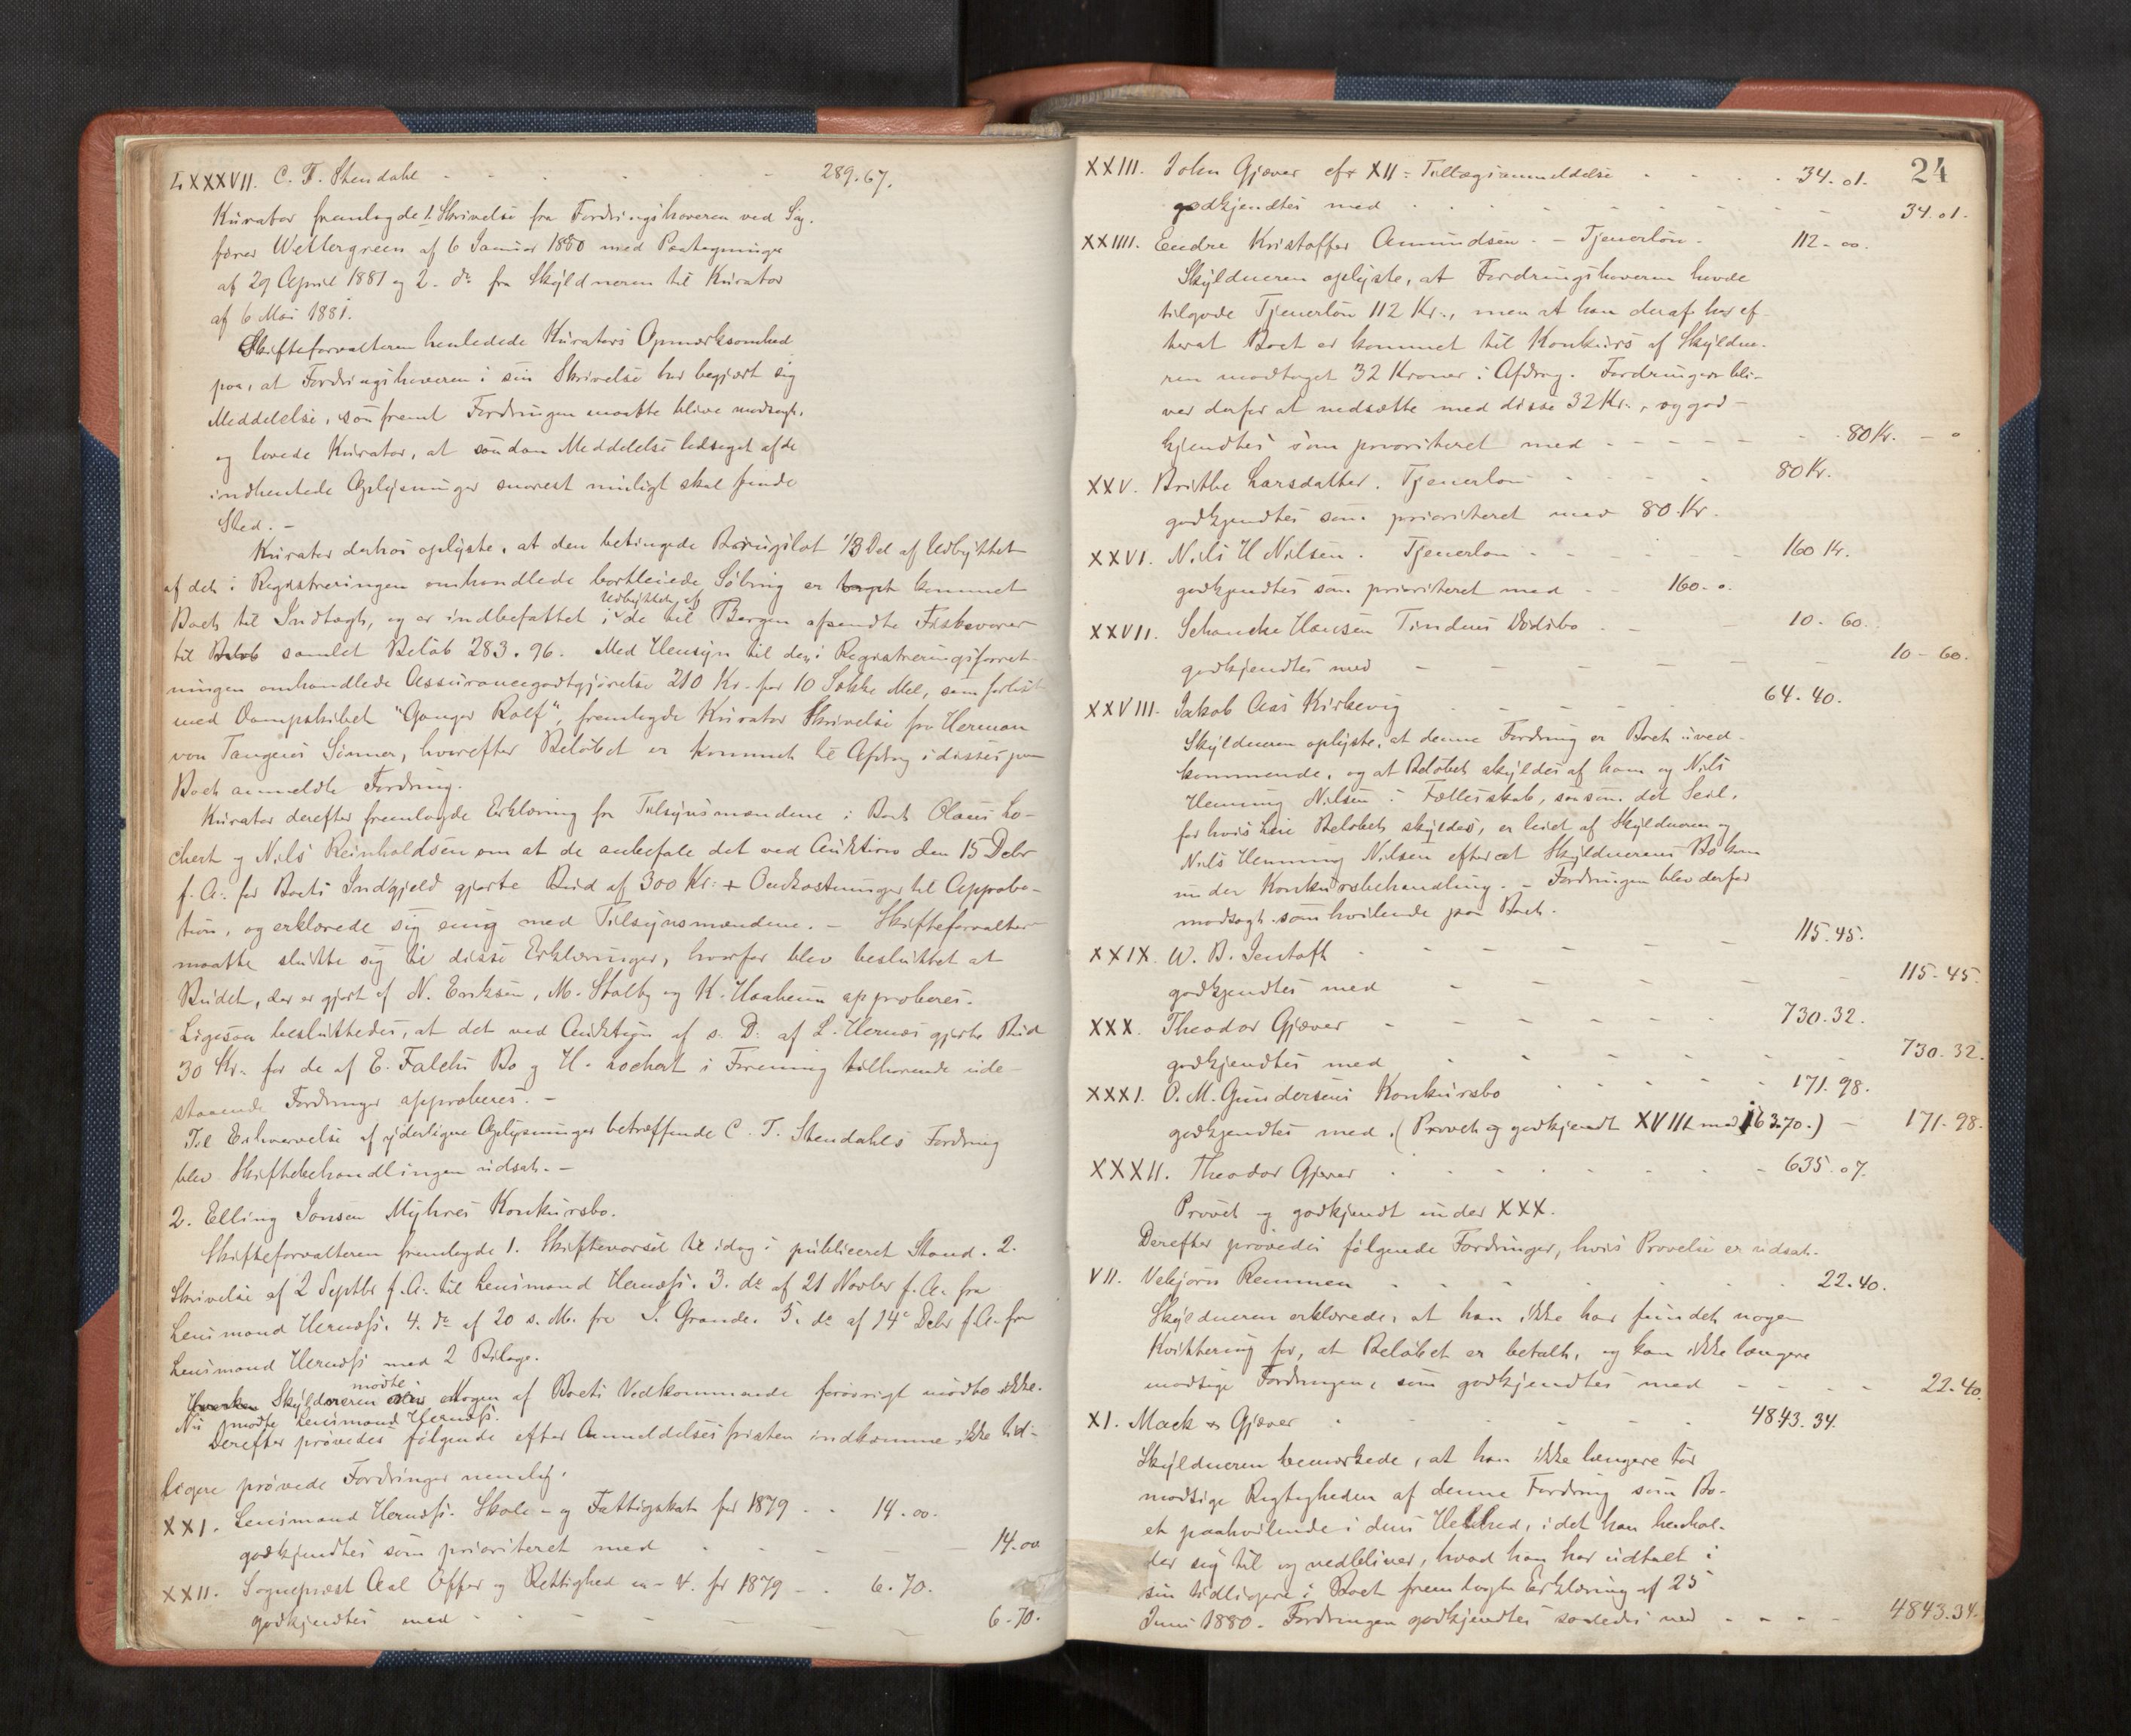 LXXXVII. C. T. Stendahl - - - - - - 289.67.
Kurator fremlagde 1. Skrivelse fra Fordringshaveren ved Sag-
fører Wettergreen af 6 Januar 1880 med Paategninger
af 29 April 1881 og 2. do fra Skyldneren til Kurator
af 6 Mai 1881.
Skifteforvalteren henledede Kurators Opmærksomhed
paa, at Fordringshaveren i sin Skrivelse har begjært sig
Meddelelse, saafremt Fordringen maatte blive modsagt,
og lovede Kurator, at saadan Meddelelse ledsaget af de
indhentede Oplysninger snarest muligt skal finde
Sted. -
Kurator derhos oplyste, at den betingede Brugslot 1/3 Del af Udbyttet
af det i Registreringen omhandlede bortleiede Sæbrug er kommet
Boet til Indtægt, og er indbefattet i Udbyttet af de til Bergen afsendte Fiskevarer
til Beløb samlet Beløb 283.96. Med Hensyn til den i Registreringsforret-
ningen omhandlede Assurancegodtgjørelse 210 Kr. for 10 Sække Mel, som forliste
med Dampskibet "Ganger Rolf", fremlagde Kurator Skrivelse fra Herman
von Tangens Sønner, hvorefter Beløbet er kommet til Afdrag i disses paa
Boet anmeldte Fordring.
Kurator derefter fremlagde Erklæring fra Tilsynsmændene i Boet Olaus Lo-
chert og Nils Reinholdsen om at de anbefale det ved Auktion den 15 Debr
f. A. for Boets Indgjeld gjorte Bud af 300 Kr. + Omkostninger til Approba-
tion, og erklærede sig enig med Tilsynsmændene. - Skifteforvalter
maatte slutte sig til disse Erklæringer, hvorfor blev besluttet at
Budet, der er gjort af N. Eriksen, M. Stalby og K. Haaheim approberes.
Ligesaa besluttedes, at det ved Auktion af s. D. af L. Hernæs gjorte Bud
30 Kr. for de af E. Falchs Bo og H. Lochert i Forening tilhørende ude-
staaende Fordringer approberes. -
Til Erhvervelse af yderligere Oplysninger betræffende C. T. Stendahls Fordring
blev Skiftebehandlingen udsat. -
2. Elling Jonsen Myhres Konkursbo.
Skifteforvalteren fremlagde 1. Skiftevarsel til idag i publiceret Stand. 2.
Skrivelse af 2 Septbr f. A. til Lensmand Hernæss. 3. do af 21 Novbr f. A. fra
Lensmand Hernæss. 4. do af 20 s. M. fra J. Grande. 5. do af 14 Debr f. A. fra
Lensmand Hernæss med 2 Bilage.
Hverken Skyldneren mødte. Nogen af Boets Vedkommende forøvrigt mødte ikke.
Nu mødte Lensmand Hernæss.
Derefter prøvedes følgende efter Anmeldelsesfristen indkomne ikke tid-
ligere prøvede Fordringer nemlig.
XXI. Lensmand Hernæss. Skole- og Fattigskat for 1879 - - 14.00.
godkjendtes som prioriteret med - - - - - 14.00
XXII. Sogneprest Aal Offer og Rettighed m. v. for 1879 - - 6.70.
godkjendtes med - - - - - 6.70.
24
XXIII. John Gjæver cfr XII = Tillægsanmeldelse - - - 34.01.
godkjendtes med - - - - - - 34.01.
XXIIII. Endre Kristoffer Amundsen. - Tjenerløn - 112.00.
Skyldneren oplyste, at Fordringshaveren havde
tilgode Tjenerløn 112 Kr., men at han deraf har ef-
terat Boet er kommet til Konkurs af Skyldne-
ren modtaget 32 Kroner i Afdrag. Fordringen bli-
ver derfor at nedsætte med disse 32 Kr., og god-
kjendtes som prioriteret med - - - - - 80 Kr. - "
XXV. Brithe Larsdatter. Tjenerløn - - - - 80 Kr.
godkjendtes som prioriteret med 80 Kr.
XXVI. Nils H Nilsen. Tjenerløn - - - - 160 Kr.
godkjendtes som prioriteret med - - 160. 0.
XXVII. Schancke Hansen Tindens Dødsbo - - - 10.60.
godkjendtes med - - - - - - 10-60.
XXVIII. Jakob Aas Kirkevig - - - - 64.40.
Skyldneren oplyste, at denne Fordring er Boet uved-
kommende, og at Beløbet skyldes af ham og Nils
Henning Nilsen i Fællesskab, saasom det Seil,
for hvis Leie Beløbet skyldes, er leiet af Skyldneren og
Nils Henning Nilsen efterat Skyldnerens Bo kom
under Konkursbehandling. - Fordringen blev derfor
modsagt som hvilende paa Boet.
XXIX. W. B. Jentoft - - - - - 115.45.
godkjendtes med - - - - - 115-45.
XXX. Theodor Gjæver - - - - - 730.32.
godkjendtes med - - - - - 730.32.
XXXI. O. M. Gundersens Konkursbo - - - - 171.98.
godkjendtes med. (Prøvet og godkjendt XVIII med 163.70.) - 171-98.
XXXII. Theodor Gjæver - - - - - 635.07.
Prøvet og godkjendt under XXX.
Derefter prøvedes følgende Fordringer, hvis Prøvelse er udsat.
VII. Vebjørn Remmen - - - - - 22.40.
Skyldneren erklærede, at han ikke har fundet nogen
Kvittering for, at Beløbet er betalt, og kan ikke længere
modsige Fordringen, som godkjendtes med - - - - 22.40.
XI. Mack & Gjæver - - - - - 4843.34.
Skyldneren bemærkede, at han ikke længere tør
modsige Rigtigheden af denne Fordring som Bo-
et paahvilende i dens Helhed, idet han henhol-
der sig til og vedbliver, hvad han har udtalt i
sin tidligere i Boet fremlagte Erklæring af 25
Juni 1880. Fordringen godkjendtes saaledes med - - - - 4843.34.